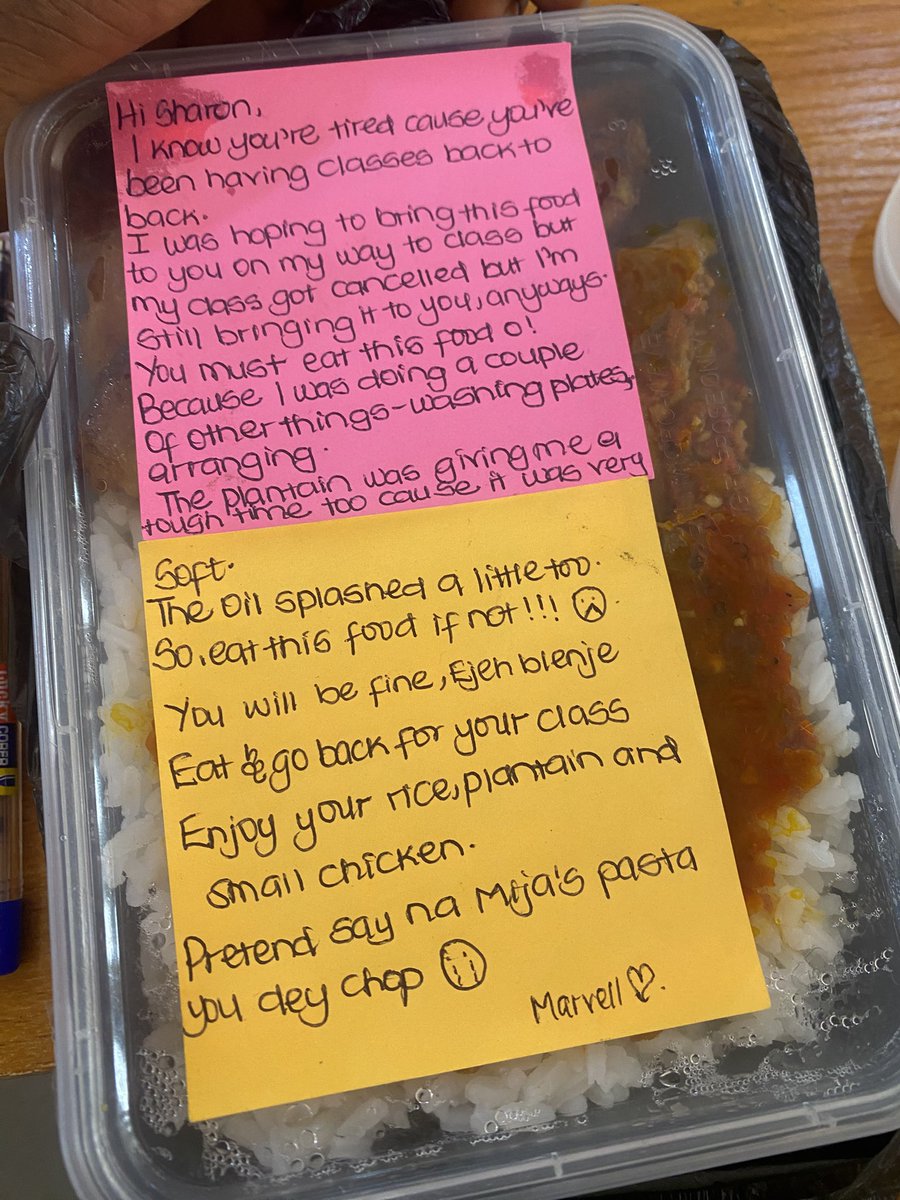 Hi Sharon,
I know you're tired cause you've
been having classes back to
back.
I was hoping to bring this food
to you on my way to class but
my class got cancelled but I'm
still bringing it to you, anyways.
You must eat this food o!
Because I was doing a couple
of other things-washing plates,
arranging.
The plantain was giving me a
tough time too cause it was very
Soft.
The oil splashed a little too.
So, eat this food if not!!!
You will be fine, Ejen blenje
Eat & go back for your class
Enjoy your rice, plantain and
small chicken.
Pretend say na Mija's pasta
you dey chop
Marvell